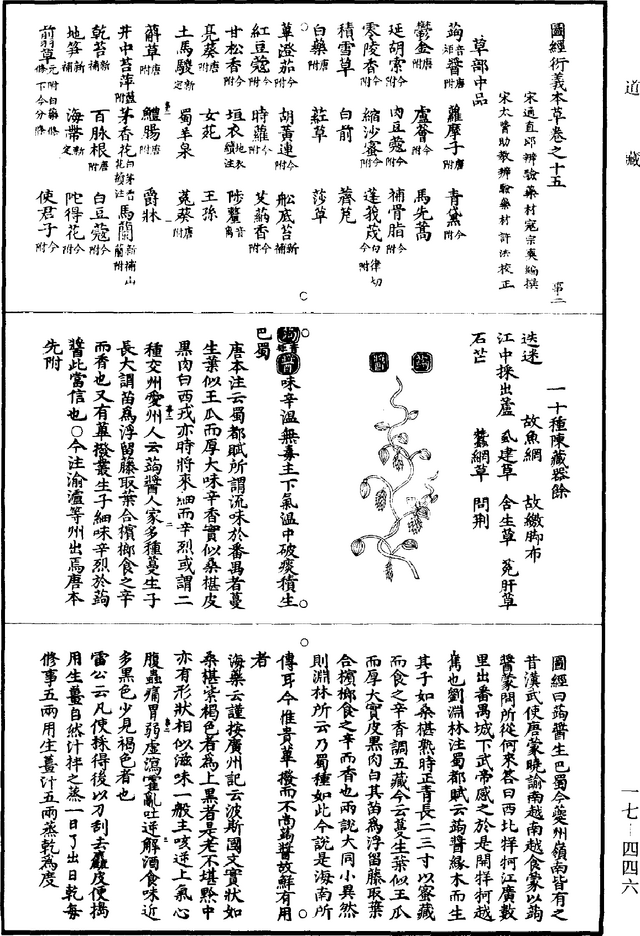 道藏
圖經衍義本草卷之十五 第二
宋通直郎辨驗藥材寇宗奭編撰
宋太醫助教辨驗藥材許洪校正
草部中品
蒟音矩醬唐附 蘿摩子唐附 青黛今附
鬱金唐附 盧薈今附 馬先蒿
延胡索今附 肉豆蔻今附 補骨脂今附
零陵香今附 縮沙蜜今附 蓬莪茂旬律切今附
積雪草 白前 薺苨
白藥唐附 葒草 莎草
蓽澄茄今附 胡黃連今附 船底苔新補
紅豆蔻今附 蒔蘿今附 艾蒳香今附
甘松香今附 垣衣地衣續注 陟釐音離
亮葵唐附 女菀 王孫
土馬騣新定 蜀羊泉 菟葵唐附
蔛草唐附 鱧腸唐附 爵牀
井中苔萍藍附 茅香花白茅香花續注 馬蘭新補山蘭附
乾苔新補 百脉根唐附 白豆蔻今附
地笋新補 海帶新定 陀得花今附
翦草元附白藥條下今分條 使君子今附
一十種陳藏器餘
迭迷 故魚網 故繳脚布
江中採出蘆 虱建草 含生草 菟肝草
石芒 蠶網草 問荆
蒟醬
蒟音矩醬味辛溫無毒主下氣溫中破痰積生
巴蜀
唐本注云蜀都賦所謂流味於番禺者蔓
生葉似王瓜而厚大味辛香實似桑椹皮
黑肉白西戎亦時將來細而辛烈或謂二
種交州愛州人云蒟醬人家多種蔓生子
長大謂苗爲浮留藤取葉合檳榔食之辛
而香也又有蓽撥叢生子細味辛烈於蒟
醬此當信也○今注渝瀘等州出焉唐本
先附
圖經曰蒟醬生巴蜀今夔州嶺南皆有之
昔漢武使唐蒙曉諭南越南越食蒙以蒟
醬蒙問所從何來荅曰西北牂牁江廣數
里出番禺城下武帝感之於是開牂牁越
嶲也劉淵林注蜀都賦云蒟醬緣木而生
其子如桑椹熟時正青長二三寸以蜜藏
而食之辛香調五藏今云蔓生葉似王瓜
而厚大實皮黑肉白其苗爲浮留藤取葉
合檳榔食之辛而香也兩說大同小異然
則淵林所云乃蜀種如此今說是海南所
傳耳今惟貴蓽撥而不尚蒟醬故鮮有用
者
海藥云謹按廣州記云波斯國文實狀如
桑椹紫褐色者爲上黑者是老不堪黔中
亦有形狀相似滋味一般主咳逆上氣心
腹蟲痛胃弱虛瀉霍亂吐逆解酒食味近
多黑色少見褐色者也
雷公云凡使採得後以刀刮去麤皮便搗
用生薑自然汁拌之蒸一日了出日乾每
修事五兩用生薑汁五兩蒸乾爲度
一七—四四六